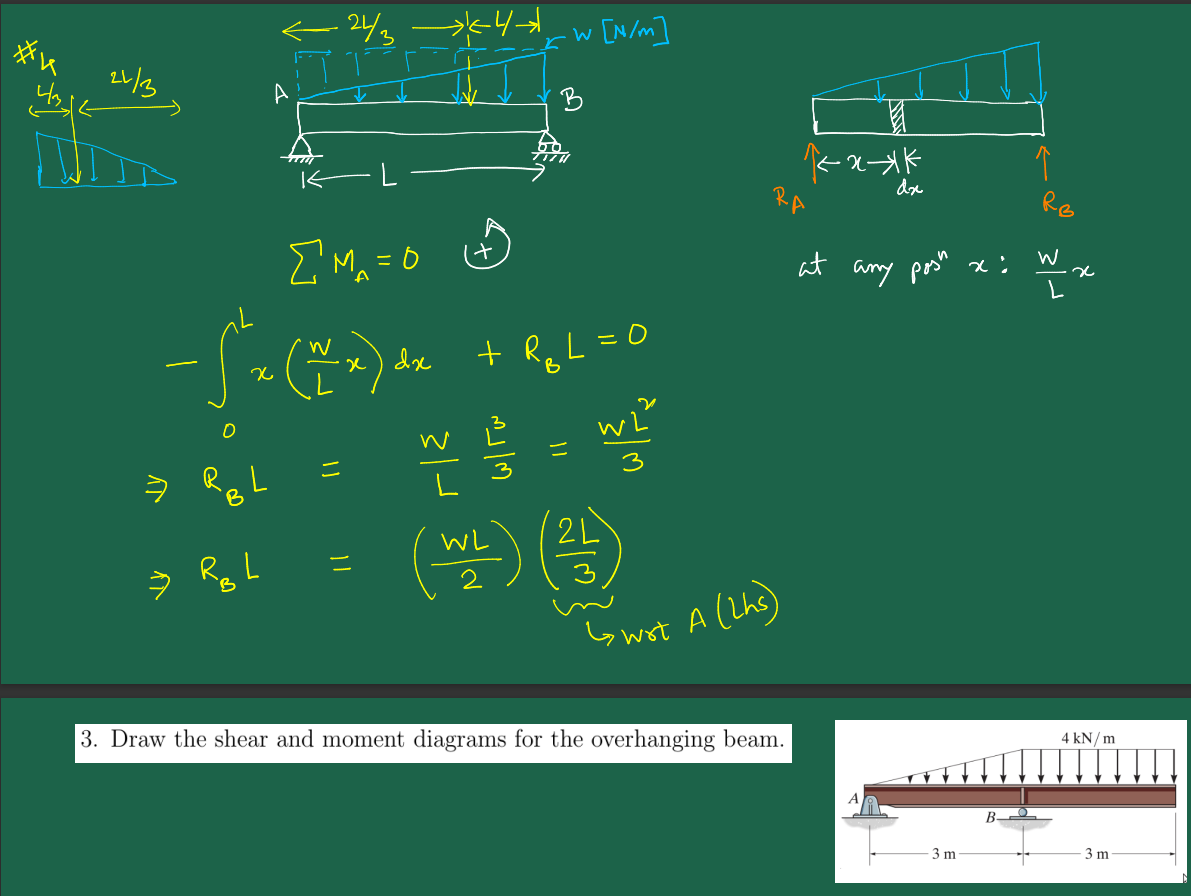 #4
L/3
2L/3
2L/3
L/3
w [N/m]
A
B
L
x
dx
R_A
R_B
∑ M_A = 0
+
at any posⁿ x : w/L x
- ∫₀ᴸ x (w/L x) dx + R_B L = 0
⇒ R_B L = w/L L³/3 = wL²/3
⇒ R_B L = (wL/2) (2L/3)
↳ wrt A (lhs)
3. Draw the shear and moment diagrams for the overhanging beam.
4 kN/m
A
B
3 m
3 m